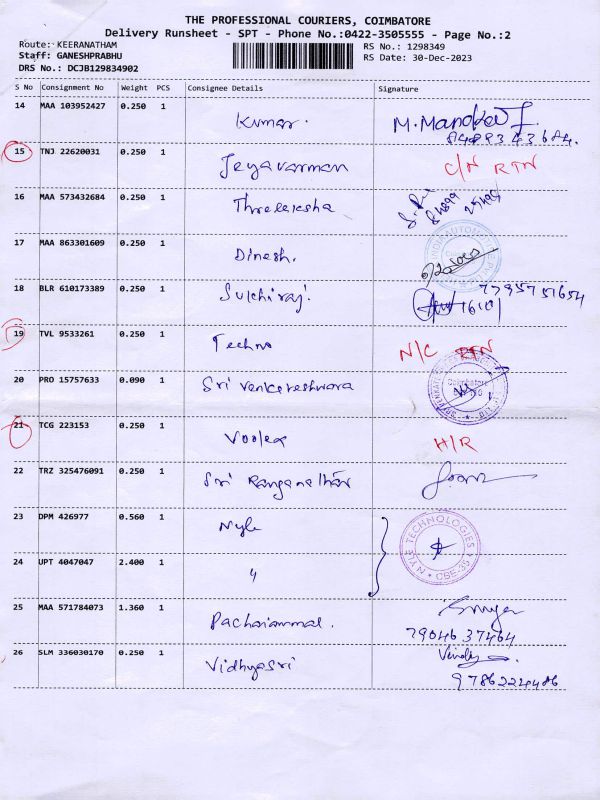 THE PROFESSIONAL COURIERS, COIMBATORE
Delivery Runsheet - SPT - Phone No.:0422-3505555 - Page No.:2
Route: KEERANATHAM
RS No.: 1298349
Staff: GANESHPRABHU
RS Date: 30-Dec-2023
DRS No.: DCJB129834902
S No Consignment No Weight PCS Consignee Details Signature
14 MAA 103952427 0.250 1 Kumar.
15 TNJ 22620031 0.250 1 Jeyavarman C/N RTN
16 MAA 573432684 0.250 1 Threleksha
17 MAA 863301609 0.250 1 Dinesh.
18 BLR 610173389 0.250 1 Sulchiraj. 7795751654
19 TVL 9533261 0.250 1 Techno N/C RTN
20 PRO 15757633 0.090 1 Sri Venkateshwara
21 TCG 223153 0.250 1 Voolex H/R
22 TRZ 325476091 0.250 1 Sri Ranganathar
23 DPM 426977 0.560 1 Nyle
NYLE TECHNOLOGIES
CBE-35
24 UPT 4047047 2.400 1 "
25 MAA 571784073 1.360 1 Pachaiammal.
7904637464
26 SLM 336030170 0.250 1 Vidhyasri
9786224486